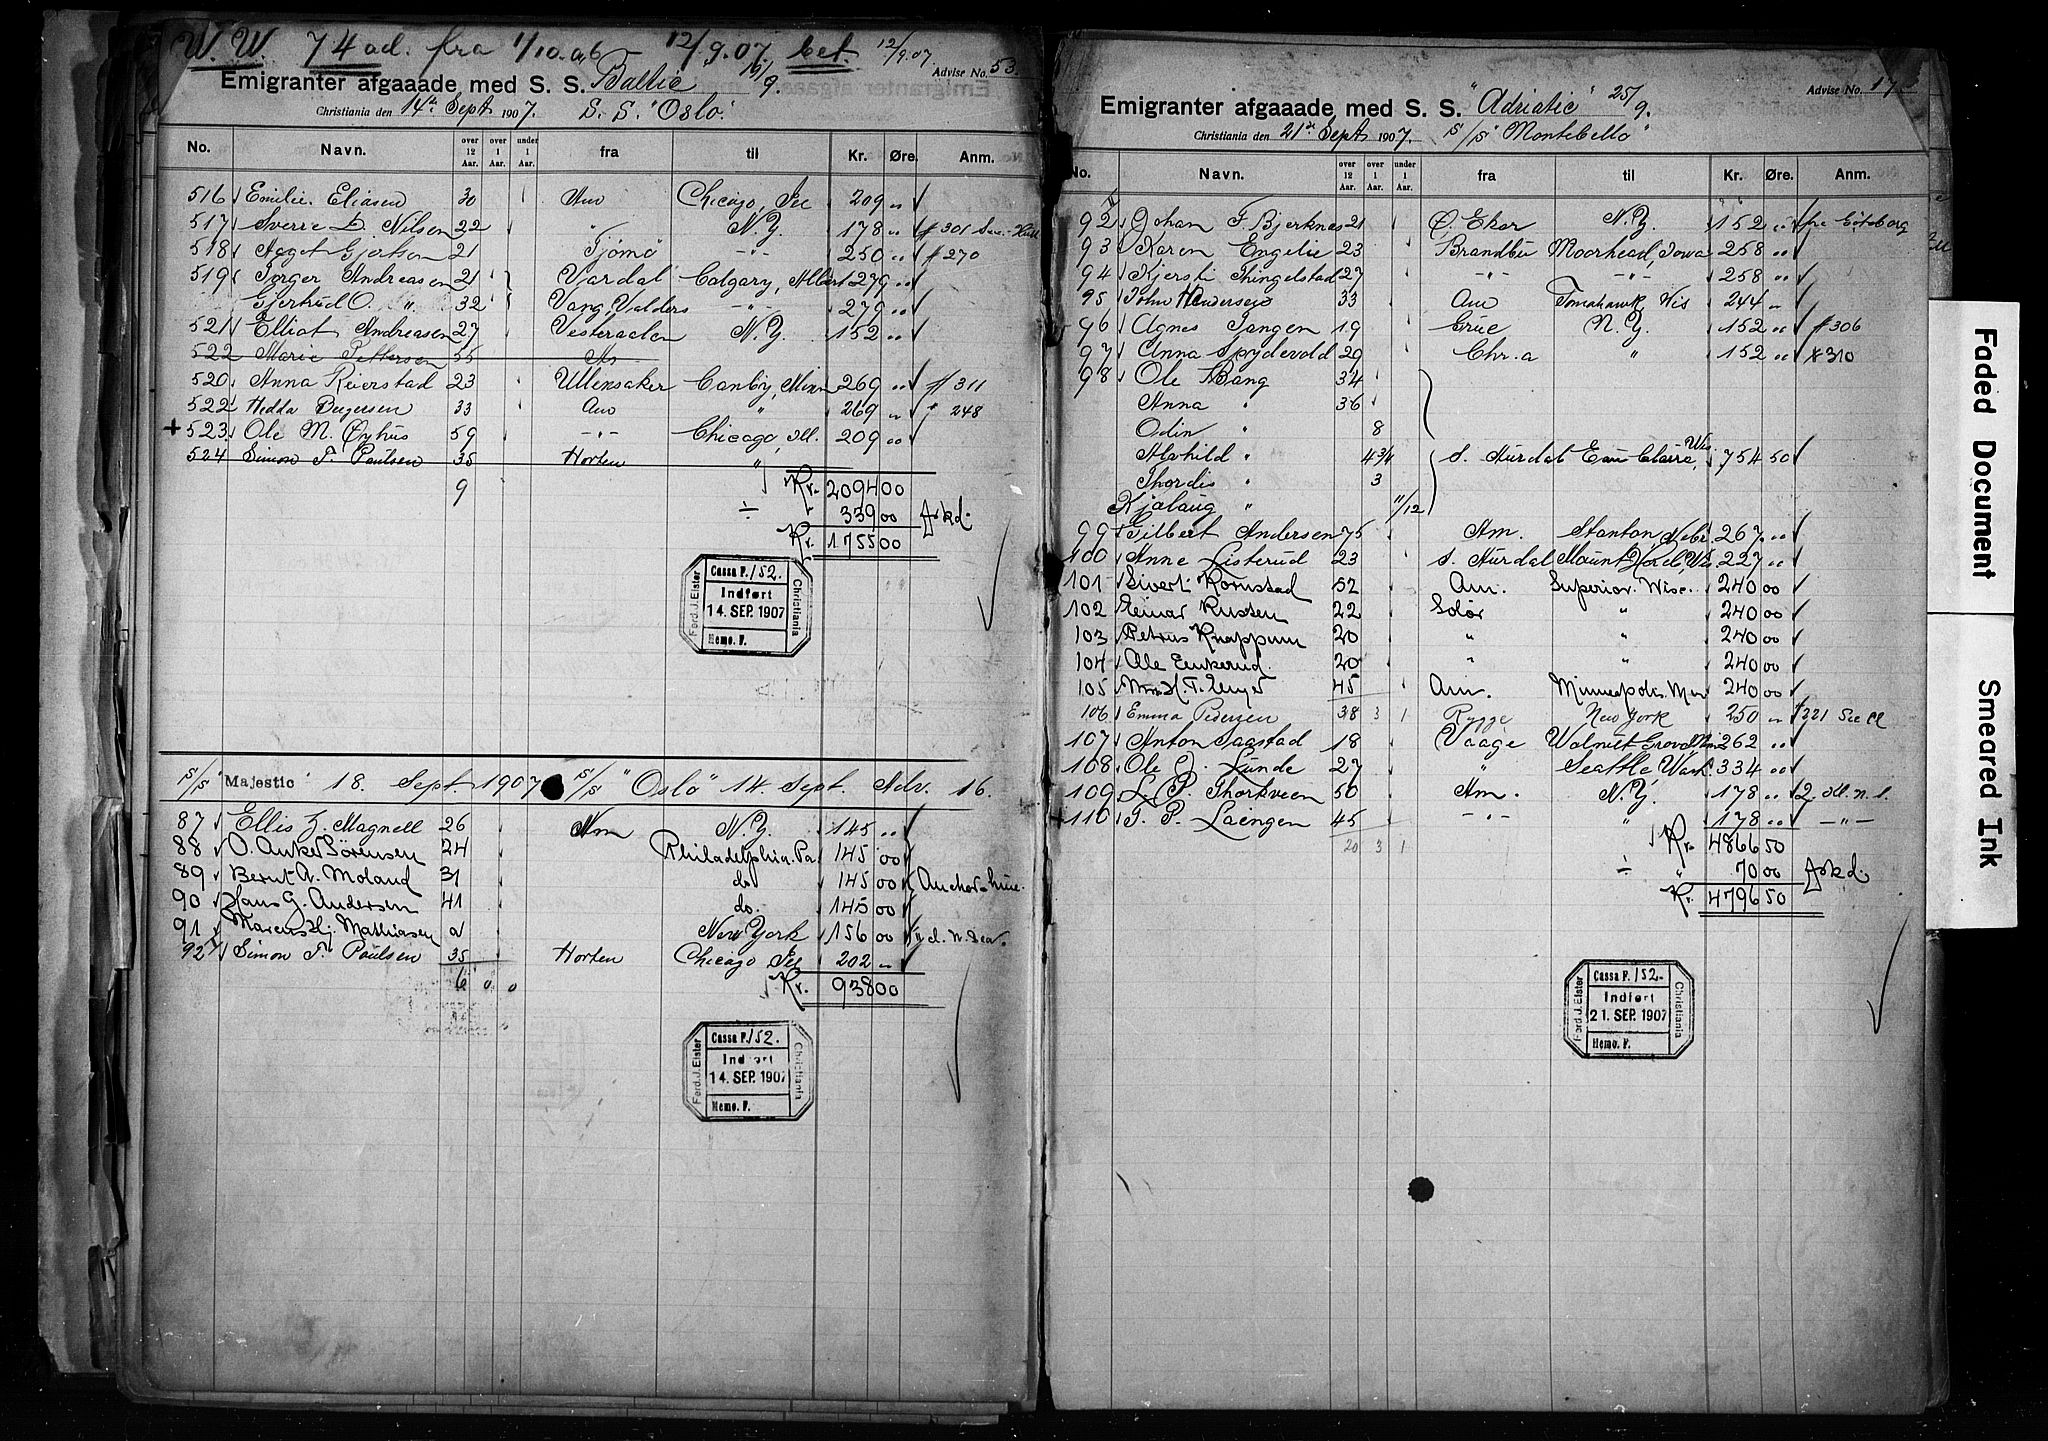 W. W. 74 ad. fra 1/10.06 12/9.07. bet. 12/9.07.
Emigranter afgaaade med S. S. "Baltic" 19/9. Advise No. 53.
Christiania den 14de Sept. 1907. S. S. "Oslo."
No. Navn. over 12 Aar. over 1 Aar. under 1 Aar. fra til Kr. Øre. Anm.
516 Emilie Eliasen 30 Am Chicago, Ill 209 "
517 Sverre D. Nilsen 22 " N.Y. 178 " # 301
518 Aagot 21 Tjömö -"- 250 " # 270
519 Jörger Andreasen 21 Vardal Calgary, Albert 279 "
Gjertrud O. " 32 Vang, Valders -"- 279 "
521 Elliot Andreasen 27 Vesteraalen N.Y. 152 "
522 Marie Pettersen 55 Am
520 Anna Reierstad 23 Ullensaker Canby, Minn 269 " # 311
522 Hedda Bergersen 33 Am " 269 " " 248
+ 523 Ole M. Öyhus 59 -"- Chicago, Ill. 209 "
524 Simon T. Paulsen 35 Horten "
9 Kr. 2094 00
÷ " 339 00 Afkd.
Kr. 1755 00
Ferd. J. Elster Christiania
Cassa F. 152.
Indført
14. SEP. 1907
Memo. F.
S/S "Majestic" 18. Sept. 1907 S/S "Oslo" 14. Sept. Adv. 16.
87 Ellis Z. Magnell 26 Am N.Y. 145 "
88 O. Anker Sörensen 24 Philadelphia. Pa. 145 00
89 Bernt A. Moland 31 do 145 00 Anchor-Line.
90 Hans G. Andersen 41 do. 145 00
91 Marcus Hj. Mathiasen a New York 156 00
92 Simon T. Paulsen 35 Horten Chicago Ill 202 "
6 0 0 Kr. 938 00
Ferd. J. Elster Christiania
Cassa F. 152.
Indført
14. SEP. 1907
Memo. F.
Emigranter afgaaade med S. S. "Adriatic" 25/9. Advise No. 17
Christiania den 21de Sept 1907. S/S "Montebello"
No. Navn. over 12 Aar. over 1 Aar. under 1 Aar. fra til Kr. Øre. Anm.
92 Johan F. Bjerknes 21 Ö. Eker N.Y. 152 " fra Göteborg
93 Karen Engelie 23 Brandbu Moorhead, Iowa 258 "
94 Kjersti Thingelstad 27 -"- -"- 258 "
95 John Andersen 33 Am Tomahawk, Wis 244 "
96 Agnes Tangen 19 Grue N.Y. 152 " # 306
97 Anna Spydevold 29 Chr.a " 152 " # 310
98 Ole Bang 34
Anna " 36
Odin " 8
Alvhild " 4 3/4 S. Aurdal Eau Claire, Wis 754 50
Thordis " 3
Kjølaug " 11/12
99 Gilbert Andersen 75 Am. Stanton, Nebr. 267 "
100 Anne Listerud 23 S. Aurdal Mount Horeb, Wis 227 "
101 Sivert Kornstad 52 Am. Superior. Wisc. 240 00
102 Einar Rusten 22 Solör " 240 00
103 Petrus Knappum 20 " " 240 00
104 Ole Enkerud. 20 " " 240 00
105 45 Am. Minneapolis. 240 00
106 Emma Pedersen 38 3 1 Rygge New York 250 " # 321
107 Anton Saastad 18 Vaage Walnut Grove 262 "
108 Ole J. Lunde 27 " Seattle Wash. 334 00
109 L. P. Thorkveen 50 Am. N.Y. 178 " 2. Kl. n. l.
+ 110 T. P. Laingen 45 -"- " 178 " -"-
20 3 1 Kr. 4866 50
÷ " 70 00 Afkd.
Kr. 4796 50
Ferd. J. Elster Christiania
Cassa F. 152.
Indført
21. SEP. 1907
Memo. F.
Faded Document
Smeared Ink